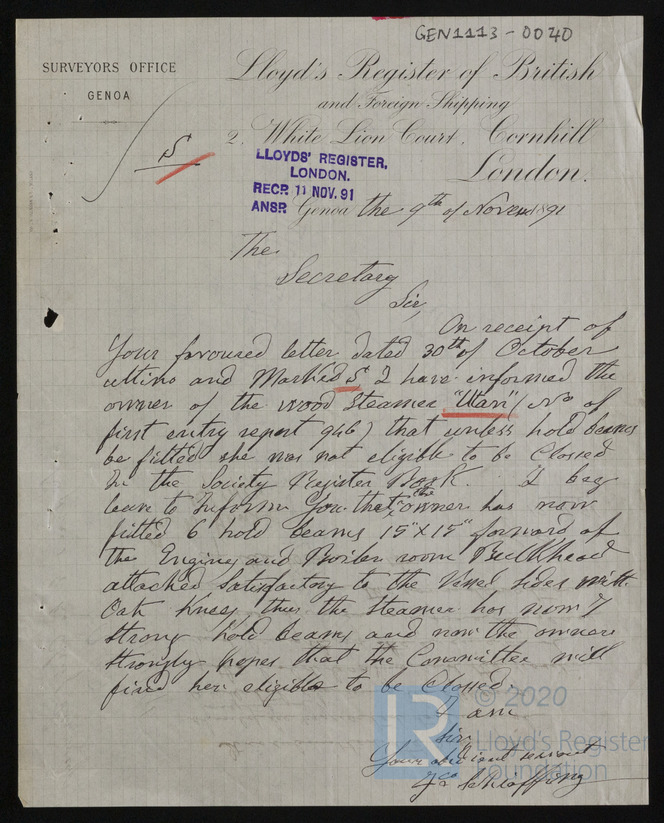 GEN1113-0040
SURVEYORS OFFICE
GENOA
Lloyd's Register of British
and Foreign Shipping
2, White Lion Court, Cornhill
London.
S
LLOYDS' REGISTER,
LONDON.
RECD. 11 NOV. 91
ANSD.
Genoa the 9th of Novem 1891
The
Secretary
Sir,
On receipt of
Your favoured letter dated 30th of October
ultimo and Marked S I have informed the
owner of the wood Steamer "Utari" (No of
first entry report 946) that unless hold beams
be fitted she was not eligible to be Classed
in the Society Register Book. I beg
leave to Inform You that the owner has now
fitted 6 hold beams 15"x15" forward of
the Engine and Boiler room Bulkhead
attached satisfactory to the Vessel sides with
Oak Knees thus the Steamer has now 7
strong hold beams and now the owner
strongly hopes that the Committee will
find her eligible to be Classed.
I am
Sir
Your obedient servant
© 2020
Lloyd's Register
Foundation